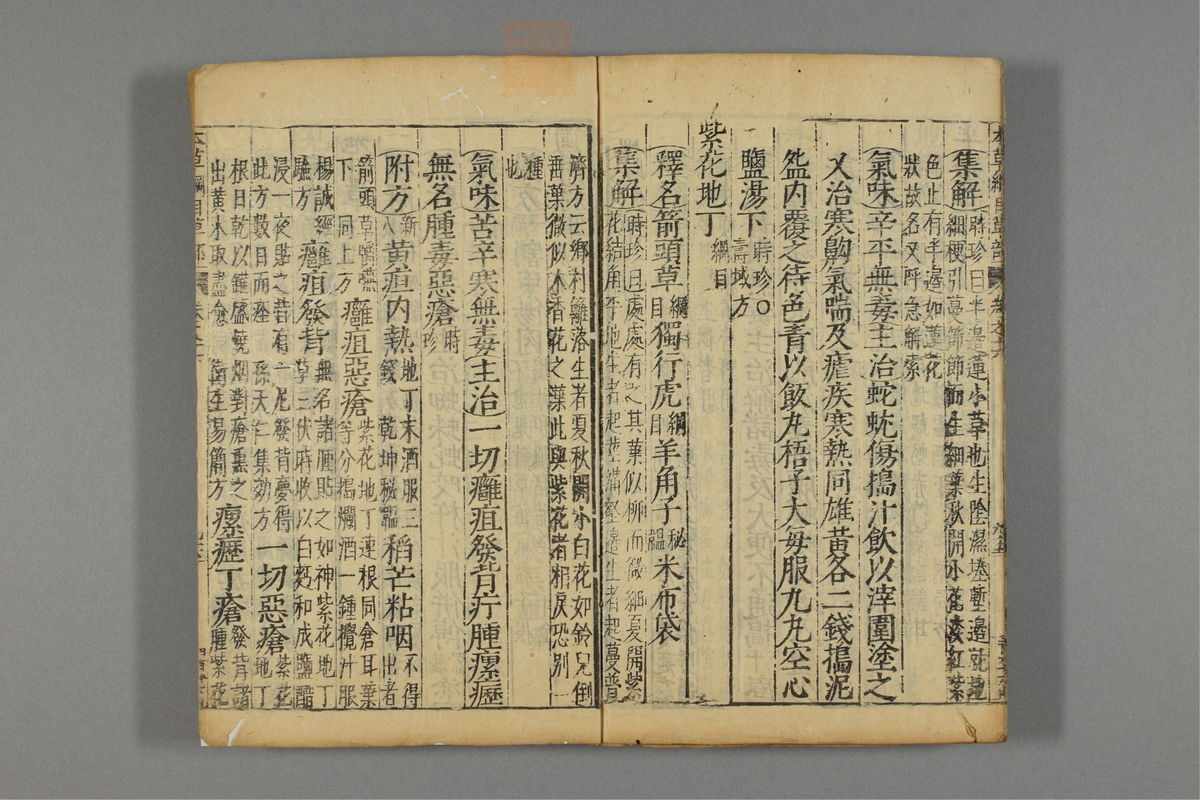 集解 時珍曰半邊蓮小草也生陰濕塍塹邊就地
細梗引蔓節節而生細葉秋開小花淡紅紫
色止有半邊如蓮花
狀故名又呼急解索
氣味辛平無毒主治蛇虺傷搗汁飲以滓圍塗之
又治寒齁氣喘及瘧疾寒熱同雄黃各二錢搗泥
盌内覆之待色青以飯丸梧子大每服九丸空心
鹽湯下 時珍○
壽域方
紫花地丁 綱目
釋名箭頭草 綱目 獨行虎 綱目 羊角子 秘韞 米布袋
集解 時珍曰處處有之其葉似柳而微細夏開紫
花結角平地生者起莖溝壑邊生者起蔓普
濟方云鄉村籬落生者夏秋開小白花如鈴兒倒
垂葉微似木香花之葉此與紫花者相戾恐別一
種
也
氣味苦辛寒無毒主治一切癰疽發背疔腫瘰癧
無名腫毒惡瘡 時珍
附方 新八 黃疸内熱 地丁末酒服三
錢 乾坤秘韞 稻芒粘咽 不得
出者
箭頭草嚼嚥
下 同上方 癰疽惡瘡 紫花地丁連根同倉耳葉
等分搗爛酒一鍾攪汁服
楊誠經
驗方 癰疽發背 無名諸腫貼之如神紫花地丁
草三伏時收以白麪和成鹽醋
浸一夜貼之昔有一尼發背夢得
此方數日而痊 孫天仁集効方 一切惡瘡 紫花
地丁
根日乾以罐盛燒烟對瘡熏之
出黃水取盡愈 衛生易簡方 瘰癧丁瘡 發背諸
腫紫花